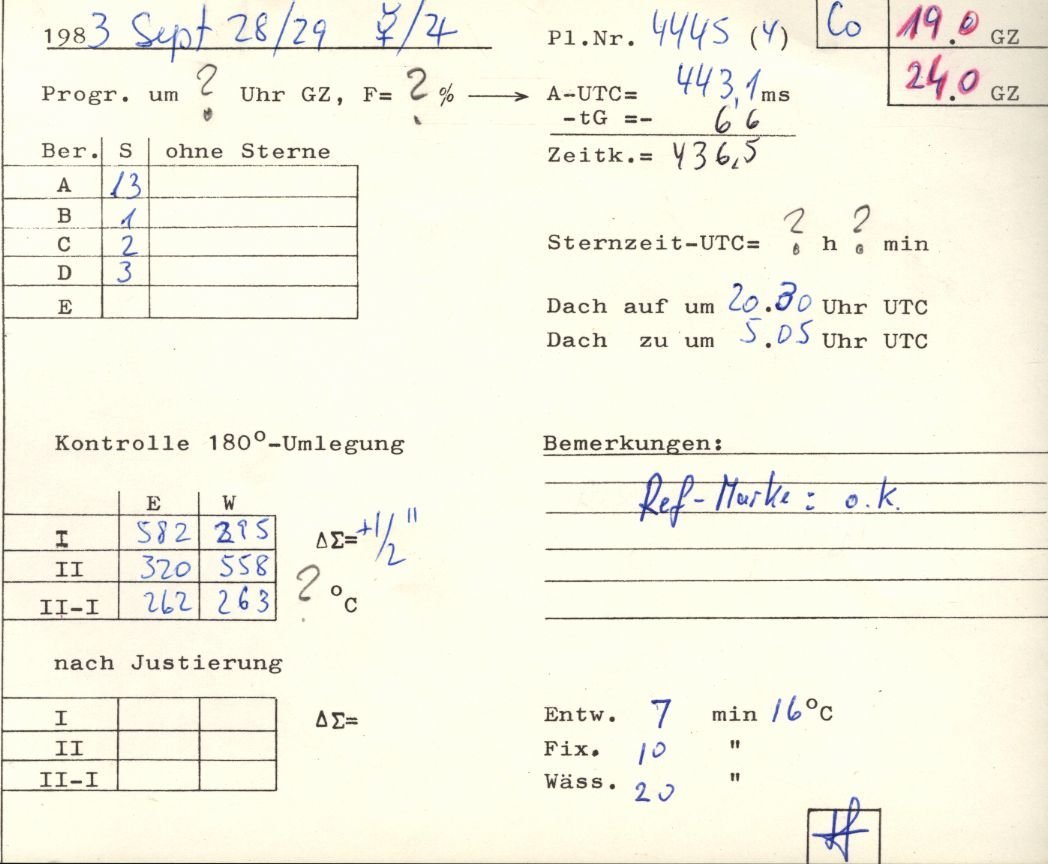 1983 Sept 28/29 ☿/♃ Pl.Nr. 4445 (4) Co 19.0 GZ
24.0 GZ
Progr. um ? Uhr GZ, F= ? % → A-UTC= 443,1 ms
-tG =- 6 6
Zeitk.= 436,5
Ber. S ohne Sterne
A 13
B 1
C 2
D 3
E
Sternzeit-UTC= ? h ? min
Dach auf um 20.30 Uhr UTC
Dach zu um 5.05 Uhr UTC
Kontrolle 180°-Umlegung
E W
I 582 295 ΔΣ=+1/2"
II 320 558
II-I 262 263 ? °C
Bemerkungen:
Ref-Marke: o.k.
nach Justierung
I ΔΣ=
II
II-I
Entw. 7 min 16°C
Fix. 10 "
Wäss. 20 "